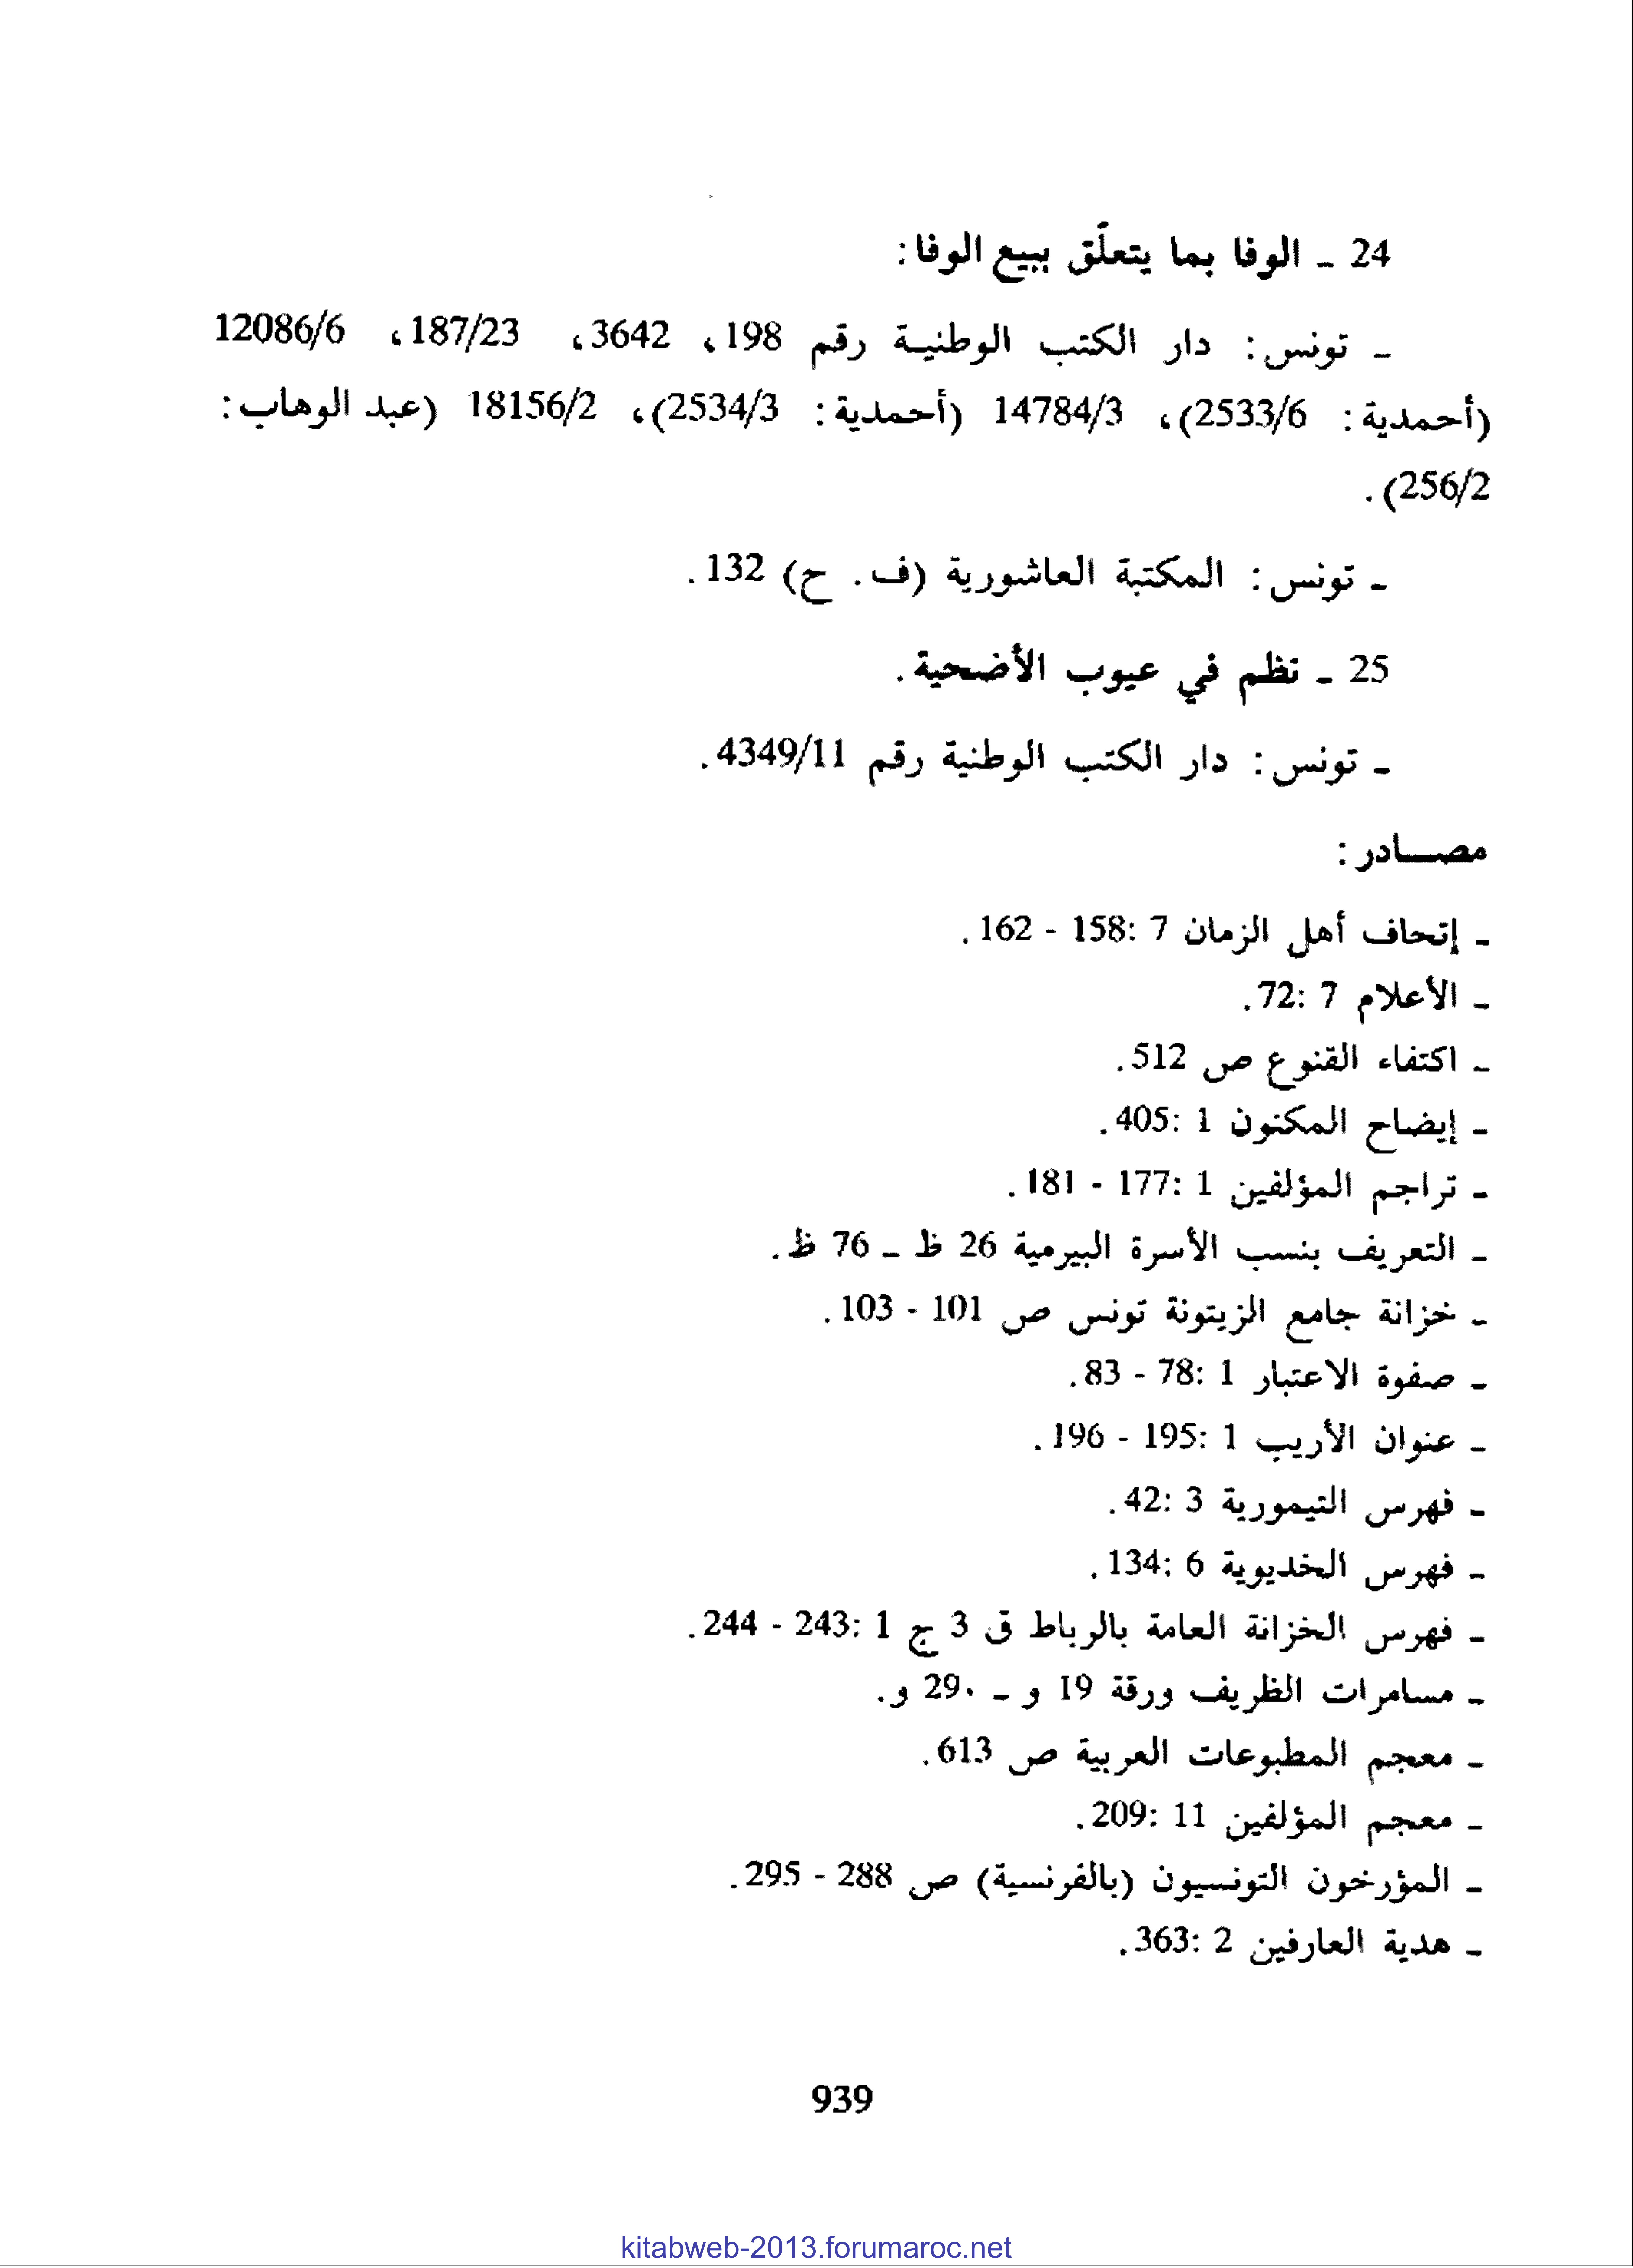 24 ـ الوفا بما يتعلّق ببيع الوفا:
ـ تونس: دار الكتب الوطنية رقم 198، 3642، 187/23، 12086/6
(أحمدية: 2533/6)، 14784/3 (أحمدية: 2534/3)، 18156/2 (عبد الوهاب:
256/2).
ـ تونس: المكتبة العاشورية (ف. ح) 132.
25 ـ نظم في عيوب الأضحية.
ـ تونس: دار الكتب الوطنية رقم 4349/11.
مصـــادر:
ـ إتحاف أهل الزمان 7 :158 - 162.
ـ الأعلام 7 :72.
ـ اكتفاء القنوع ص 512.
ـ إيضاح المكنون 1 :405.
ـ تراجم المؤلفين 1 :177 - 181.
ـ التعريف بنسب الأسرة البيرمية 26 ظ ـ 76 ظ.
ـ خزانة جامع الزيتونة تونس ص 101 - 103.
ـ صفوة الاعتبار 1 :78 - 83.
ـ عنوان الأريب 1 :195 - 196.
ـ فهرس التيمورية 3 :42.
ـ فهرس الخديوية 6 :134.
ـ فهرس الخزانة العامة بالرباط ق 3 ج 1 :243 - 244.
ـ مسامرات الظريف ورقة 19 و ـ 29٠ و.
ـ معجم المطبوعات العربية ص 613.
ـ معجم المؤلفين 11 :209.
ـ المؤرخون التونسيون (بالفرنسية) ص 288 - 295.
ـ هدية العارفين 2 :363.
939
kitabweb-2013.forumaroc.net